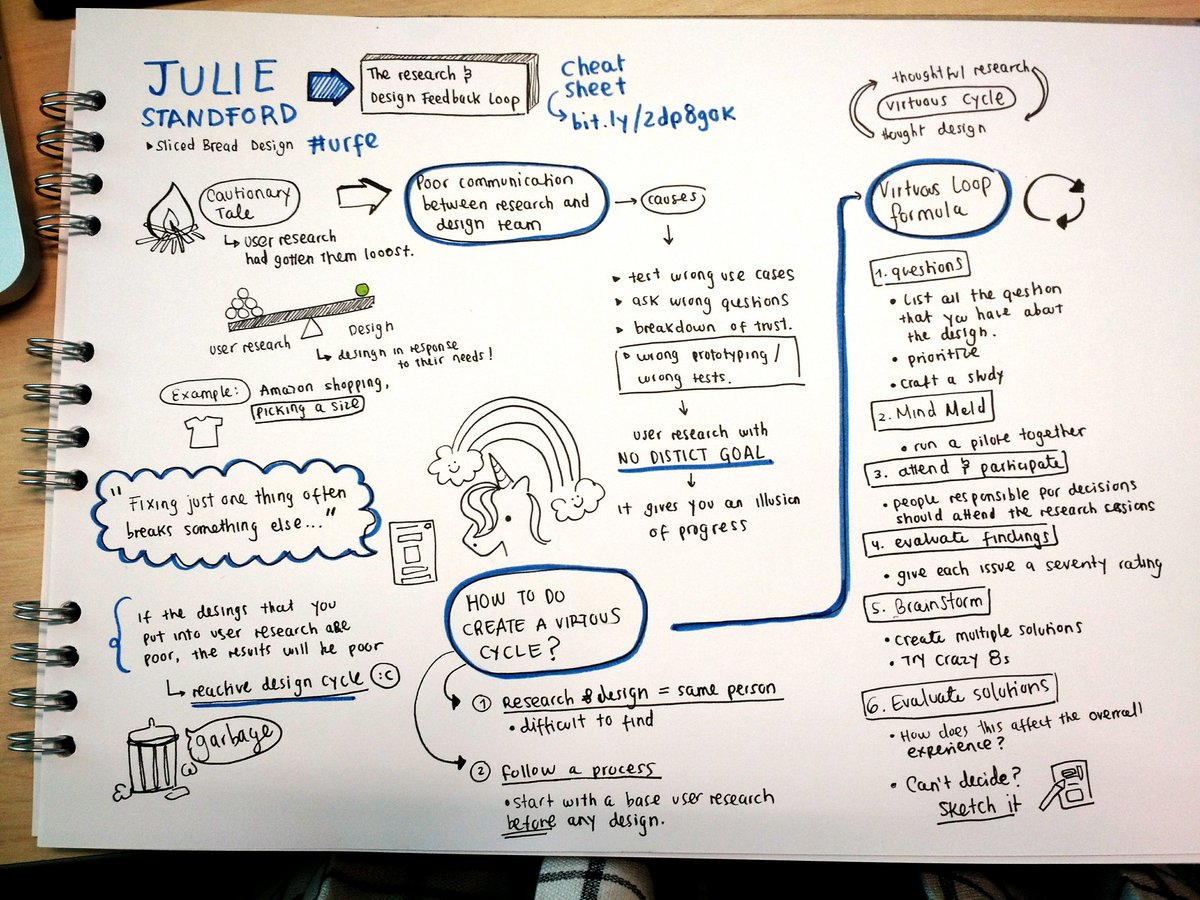 JULIE
STANDFORD
Sliced Bread Design #urfe
The research &
Design Feedback Loop
Cheat
Sheet
bit.ly/2dp8gok
thoughtful research
virtuous cycle
thought design
Cautionary
Tale
user research
had gotten them looost.
Poor communication
between research and
design team
causes
test wrong use cases
ask wrong qustions
breakdown of trust.
wrong prototyping /
wrong tests.
user research with
NO DISTICT GOAL
it gives you an illusion
of progress
user research
Design
desingn in response
to their needs!
Example:
Amazon shopping,
picking a size
"Fixing just one thing often
breaks something else..."
If the desings that you
put into user research are
poor, the results will be poor
reactive design cycle :c
garbage
HOW TO DO
CREATE A VIRTOUS
CYCLE?
1 Research & design = same person
• difficult to find
2 follow a process
• start with a base user research
before any design.
Virtuous Loop
formula
1. questions
• List all the question
that you have about
the design.
• prioritize
• craft a study
2. Mind Meld
• run a pilote together
3. attend & participate
• people responsible for decisions
should attend the research sessions
4. evaluate findings
• give each issue a seventy rating
5. Brainstorm
• create multiple solutions
• Try crazy 8s
6. Evaluate solutions
• How does this affect the overrall
experience?
• Can't decide?
Sketch it